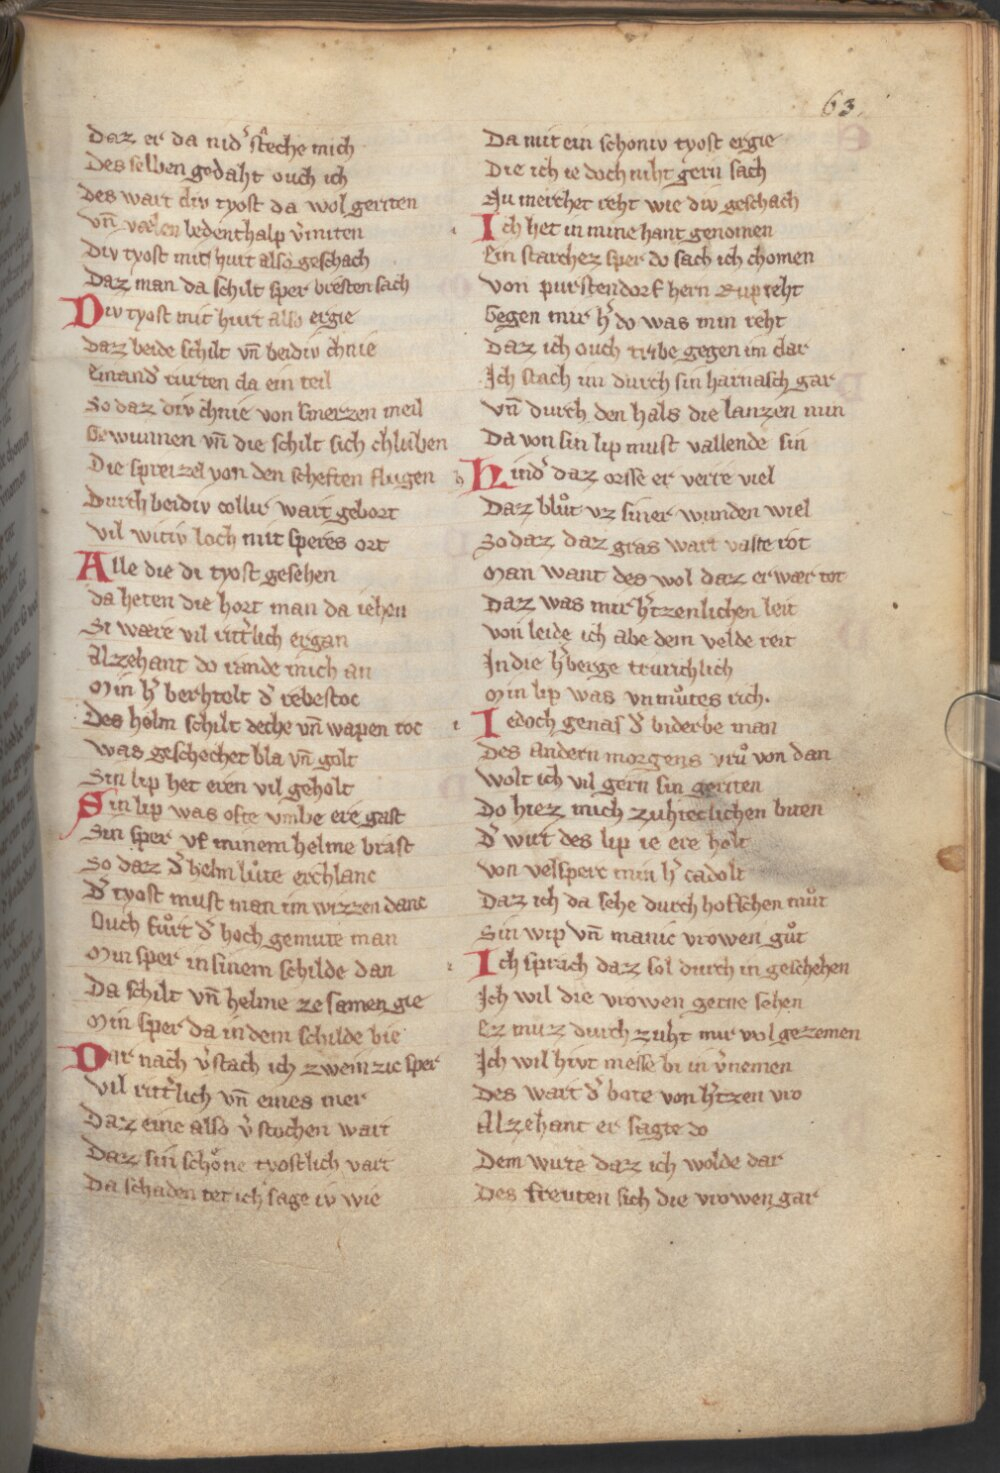 63.
Daz er da nid᷑ stêche mich
Des selben gedaht ouch ich
Des wart div tyost da wol geriten
vn̄ vælen ledenthalp v᷑miten
Div tyost mit hurt also geschach
Daz man da schilt sper bresten sach
Div tyost mit hurt also ergie
daz beide schilt vn̄ beidiv chnie
Einand᷑ rurten da ein teil
So daz div chnie von smerzen meil
Gewunnen vn̄ die schilt sich chluben
Die spreizel von den scheften flugen
Durch beidiv collir wart gebort
vil witiv loch mit speres ort
Alle die di tyost gesehen
da heten die hort man da iehen
Si wære vil ritt᷑lich ergan
Alzehant do rande mich an
Min h᷑ berhtolt d᷑ rebestoc
Des helm schilt deche vn̄ wapen roc
was geschechet bla vn̄ golt
Sin lip het eren vil geholt
Sin lip was ofte vmbe ere gast
Sin sper vf minem helme brast
So daz d᷑ helm lute erchlanc
D᷑ tyost must man im wizzen danc
Ouch fuͦrt d᷑ hoch gemute man
Min sper in sinem schilde dan
Da schilt vn̄ helme ze samen gie
Min sper da in dem schilde bie
Dar nach v᷑stach ich zweinzic sper
vil ritt᷑lich vn̄ eines mer
Daz eine also v᷑stochen wart
Daz sin schoͤne tyostlich vart
Da schaden tet ich sage iv wie
Da mit ein schoniv tyost ergie
Die ich ie doch niht gern sach
Nu merchet reht wie div geschach
Ich het in mine hant genomen
Ein starchez sper do sach ich chomen
von purstendorf hern Rupreht
Gegen mir h᷑ do was min reht
Daz ich ouch tribe gegen im dar
Ich stach im durch sin harnasch gar
vn̄ durch den hals die lanzen min
Da von sin lip must vallende sin
Hind᷑ daz orsse er verre viel
Daz bluͦt vz siner wunden wiel
So daz daz gras wart vaste rot
Man want des wol daz er wær tot
Daz was mir h᷑tzenlichen leit
von leide ich abe dem velde reit
In die h᷑berge trurichlich
Min lip was vnmuͦtes rich.
Iedoch genas d᷑ biderbe man
Des andern morgens vruͦ von dan
wolt ich vil gern sin geriten
Do hiez mich zuhtetlichen biten
D᷑ wirt des lip ie ere holt
von velsperc min h᷑ cadolt
Daz ich da sehe durch hoffschen muͦt
Sin wip vn̄ manic vrowen guͦt
Ich sprach daz sol durch in geschehen
Ich wil die vrowen gerne sehen
Ez muz durch zuht mir wol gezemen
Ich wil hivt messe bi in v᷑nemen
Des wart d᷑ bote von h᷑tzen vro
Alzehant er sagte do
Dem wirte daz ich wolde dar
Des freuten sich die vrowen gar